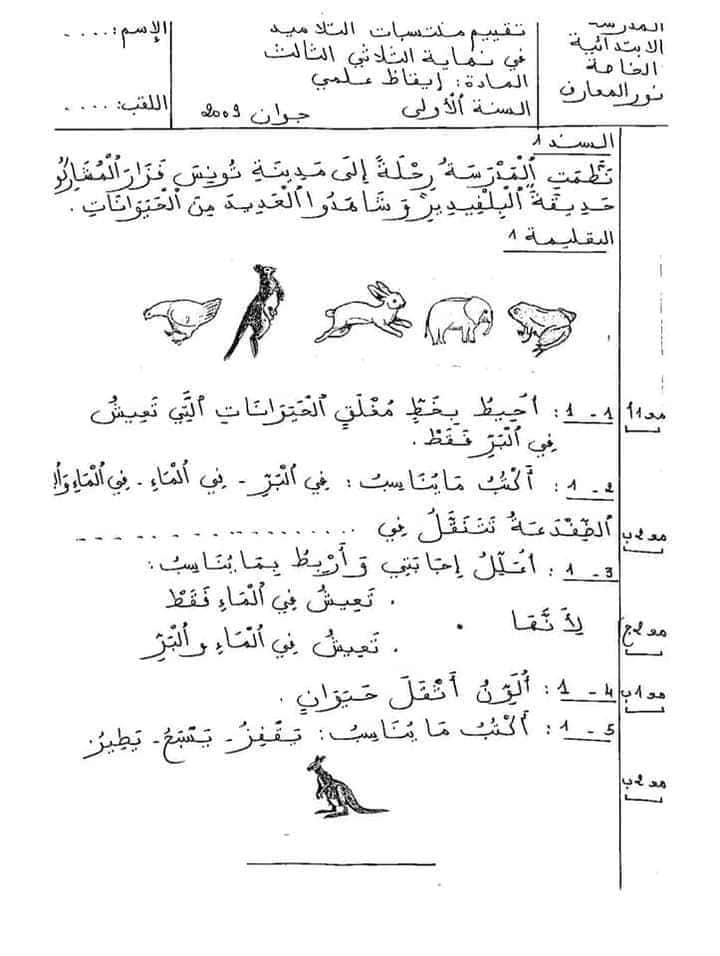 المدرسة
الابتدائية
الخاصة
نور المعارف
تقييم مكتسبات التلاميذ
في نهاية الثلاثي الثالث
المادة: إيقاظ علمي
السنة الأولى جوان 2009
الإسم: ....
اللقب: ....
السند 1
نَظَّمَتِ الْمَدْرَسَةُ رِحْلَةً إِلَى مَدِينَةِ تُونِسَ فَزَارَ الْمُشَارِكُو
حَدِيقَةَ الْبِلْفِيدِيرْ وَشَاهَدُوا الْعَدِيدَ مِنَ الْحَيَوَانَاتِ.
التعليمة 1
1 - 1: أُحِيطُ بِخَطٍّ مُغْلَقٍ الْحَيَوَانَاتِ الَّتِي تَعِيشُ
فِي الْبَرِّ فَقَطْ.
مع1أ
1 - 2: أَكْتُبُ مَا يُنَاسِبُ: فِي الْبَرِّ - فِي الْمَاءِ - فِي الْمَاءِ وَالْ
الضِّفْدَعَةُ تَتَنَقَّلُ فِي ..................
مع2ب
1 - 3: أُعَلِّلُ إِجَابَتِي وَ أَرْبِطُ بِمَا يُنَاسِبُ:
. تَعِيشُ فِي الْمَاءِ فَقَطْ
لِأَنَّهَا .
. تَعِيشُ فِي الْمَاءِ وَ الْبَرِّ
مع2ج
1 - 4: أُلَوِّنُ أَثْقَلَ حَيَوَانٍ.
مع1ب
1 - 5: أَكْتُبُ مَا يُنَاسِبُ: يَقْفِزُ - يَسْبَحُ - يَطِيرُ
مع2ب